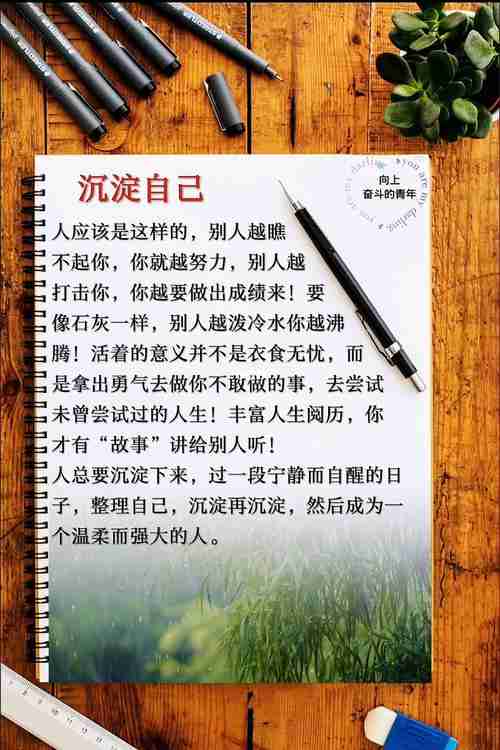 沉淀自己
you are my darling you are my darling
向上
奋斗的青年
人应该是这样的，别人越瞧
不起你，你就越努力，别人越
打击你，你越要做出成绩来！要
像石灰一样，别人越泼冷水你越沸
腾！活着的意义并不是衣食无忧，而
是拿出勇气去做你不敢做的事，去尝试
未曾尝试过的人生！丰富人生阅历，你
才有“故事”讲给别人听！
人总要沉淀下来，过一段宁静而自醒的日
子，整理自己，沉淀再沉淀，然后成为一
个温柔而强大的人。